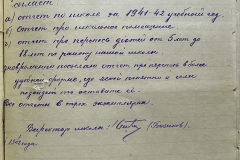 а) отчет по школе за 1941-42 учебный год.
б) отчет о школьном помещении
в) отчет про перепись детей от 5 лет до
18 лет по району нашей школы
посылаем отчет про перепись в более
удобной форме, где всей
позволит то оставить её.
Все отчеты в трех экземплярах.
Директор школы: